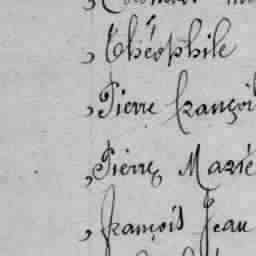 , Théophile
, Pierre françoi
, Pierre, Marie
, françois Jean